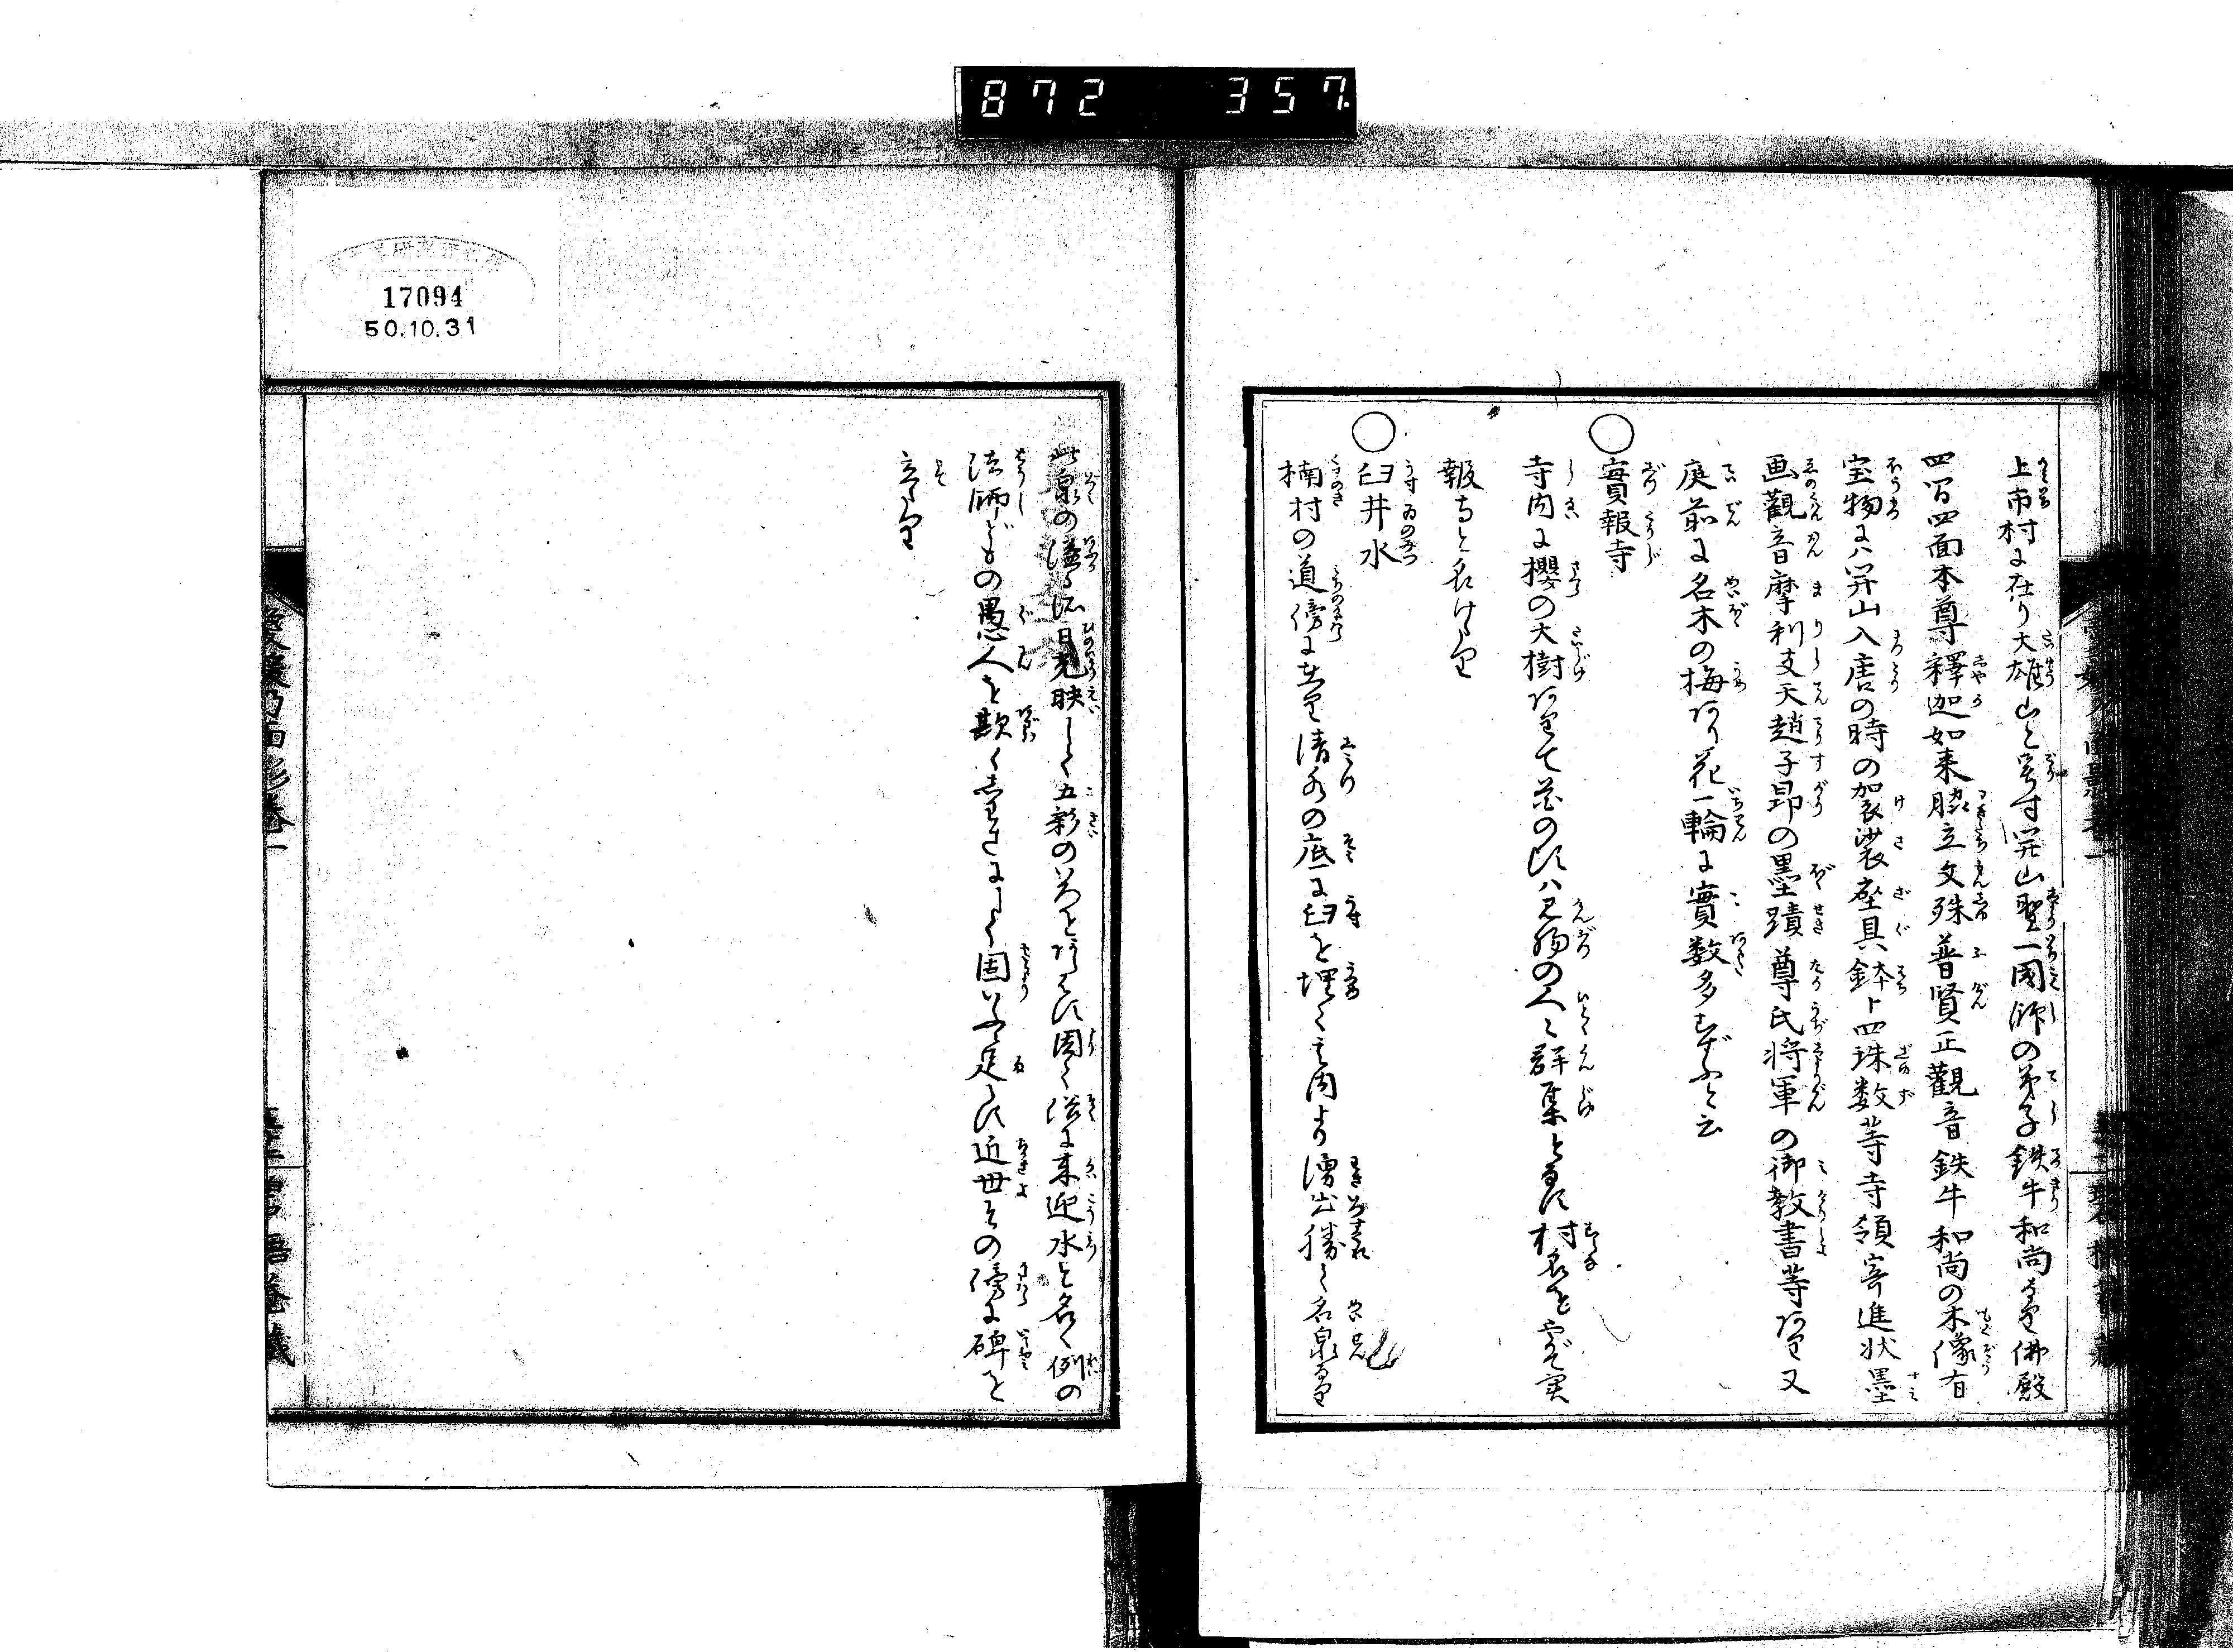 872 357
上市村に在り大雄山と号す開山聖一國師の弟子鉄牛和尚なり佛殿
四間四面本尊釋迦如来脇立文殊普賢正觀音鉄牛和尚の木像有
宝物にハ開山入唐の時の袈裟座具鉢上四珠数等寺領寄進状墨
画觀音摩利支天趙子昴の墨蹟尊氏将軍の御教書等あり又
庭前に名木の梅あり花一輪に實数多むすぶと云
○實報寺
寺内に櫻の大樹ありて花の比ハ見物の人々群集となす村名を実
報寺と名けたり
○臼井水
楠村の道傍に在り清水の底に臼を埋て其内より湧出勝し名泉なり
此泉の溢るゝ水日光映して五彩のいろをあらハす因て俗に来迎水と名く例の
法師どもの愚人を欺く
固いふに足らす近世その傍に碑を
立たり
愛媛乃面影巻一
17094
50.10.31